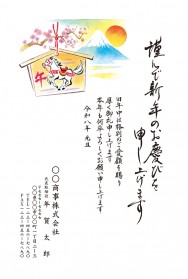 謹んで新年のお慶びを
申し上げます
旧年中は格別のご愛顧を賜り
厚く御礼申し上げます
本年も何卒よろしくお願い申し上げます
令和八年 元旦
午
〇〇商事株式会社
代表取締役 年賀太郎